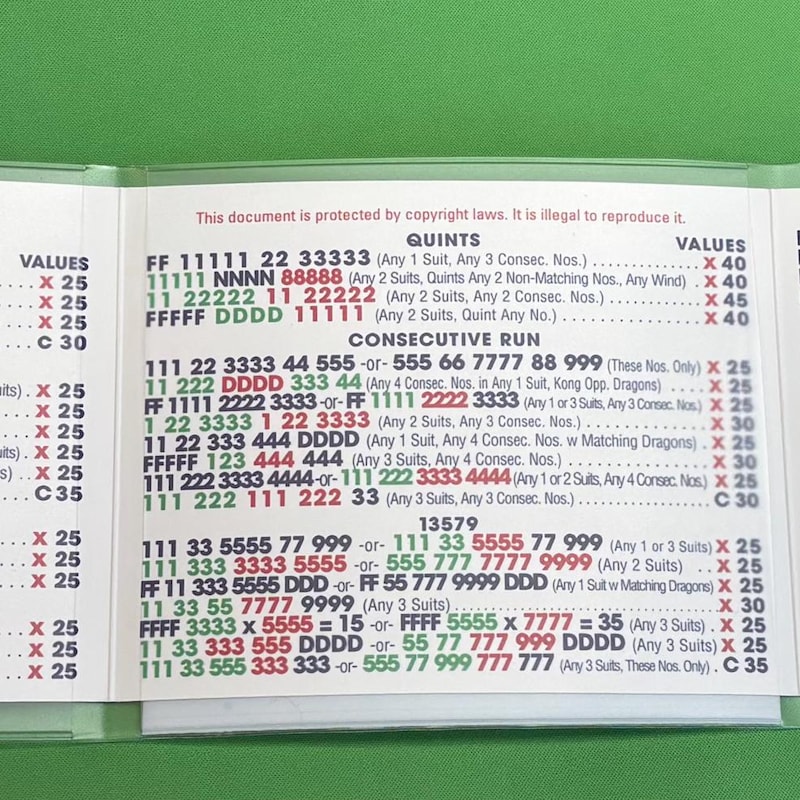 This document is protected by copyright laws. It is illegal to reproduce it.
QUINTS VALUES
FF 11111 22 33333 (Any 1 Suit, Any 3 Consec. Nos.) X 40
11111 NNNN 88888 (Any 2 Suits, Quints Any 2 Non-Matching Nos., Any Wind) . X 40
11 22222 11 22222 (Any 2 Suits, Any 2 Consec. Nos.) X 45
FFFFF DDDD 11111 (Any 2 Suits, Quint Any No.) X 40
CONSECUTIVE RUN
111 22 3333 44 555 -or- 555 66 7777 88 999 (These Nos. Only) X 25
11 222 DDDD 333 44 (Any 4 Consec. Nos. in Any 1 Suit, Kong Opp. Dragons) X 25
FF 1111 2222 3333 -or- FF 1111 2222 3333 (Any 1 or 3 Suits, Any 3 Consec. Nos.) X 25
1 22 3333 1 22 3333 (Any 2 Suits, Any 3 Consec. Nos.) X 30
11 22 333 444 DDDD (Any 1 Suit, Any 4 Consec. Nos. w Matching Dragons) . X 25
FFFFF 123 444 444 (Any 3 Suits, Any 4 Consec. Nos.) X 30
111 222 3333 4444 -or- 111 222 3333 4444 (Any 1 or 2 Suits, Any 4 Consec. Nos.) X 25
111 222 111 222 33 (Any 3 Suits, Any 3 Consec. Nos.) C 30
13579
111 33 5555 77 999 -or- 111 33 5555 77 999 (Any 1 or 3 Suits) X 25
111 333 3333 5555 -or- 555 777 7777 9999 (Any 2 Suits) . . X 25
FF 11 333 5555 DDD -or- FF 55 777 9999 DDD (Any 1 Suit w Matching Dragons) X 25
11 33 55 7777 9999 (Any 3 Suits) X 30
FFFF 3333 x 5555 = 15 -or- FFFF 5555 x 7777 = 35 (Any 3 Suits) . X 25
11 33 333 555 DDDD -or- 55 77 777 999 DDDD (Any 3 Suits) X 25
11 33 555 333 333 -or- 555 77 999 777 777 (Any 3 Suits, These Nos. Only) . C 35
VALUES
X 25
X 25
X 25
C 30
X 25
X 25
X 25
X 25
X 25
C 35
X 25
X 25
X 25
X 25
X 25
X 25